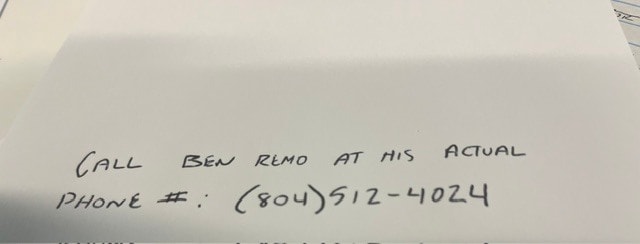 CALL BEN REMO AT HIS ACTUAL
PHONE #: (804)512-4024